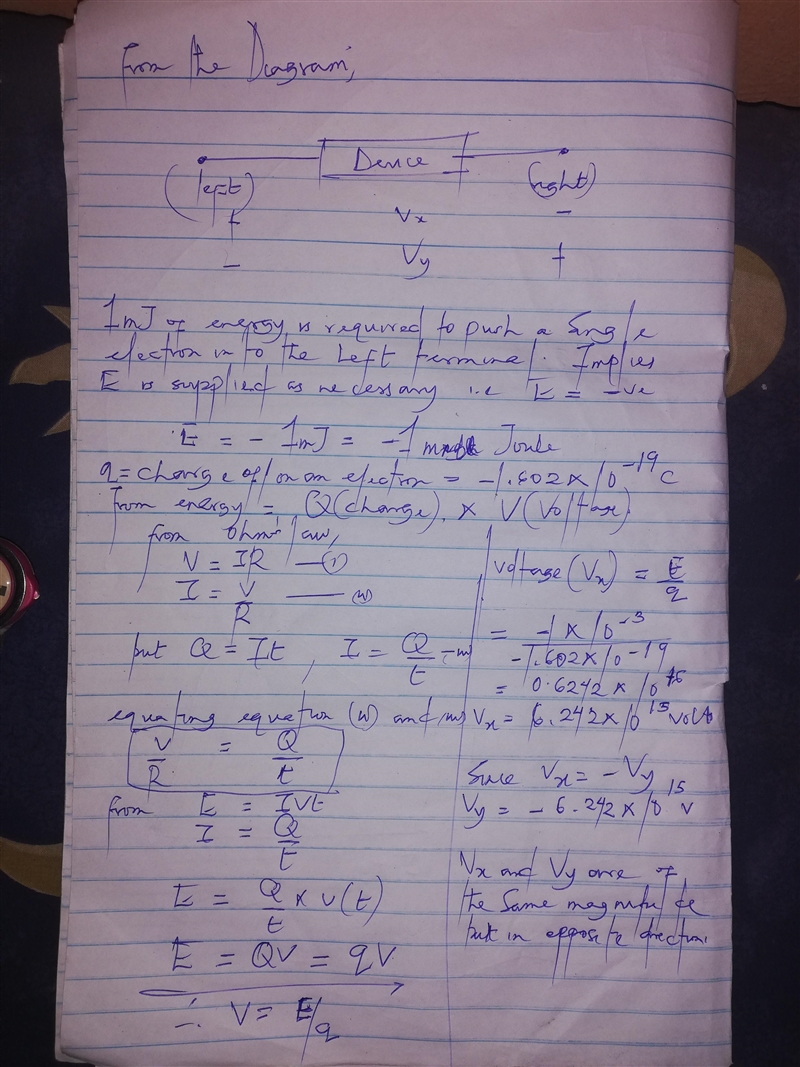 From the Diagram;
Device
(left) (right)
+ Vx -
- Vy +
1mJ of energy is required to push a Single
electron in to the Left terminal. Implies
E is supplied as necessary i.e E = -ve
E = - 1mJ = -1 Joule
q = charge of/on an electron = -1.602 x 10^-19 C
From energy = Q(charge) x V(Voltage)
from Ohm's law,
V = IR — (i)
I = V/R — (ii)
but Q = It, I = Q/t - (iii)
equating equation (ii) and (iii)
V/R = Q/t
from E = IVt
I = Q/t
E = Q/t x V(t)
E = QV = qV
∴ V = E/q
Voltage (Vx) = E/q
= -1 x 10^-3 / -1.602 x 10^-19
= 0.6242 x 10^16
Vx = 6.242 x 10^15 volts
Since Vx = -Vy
Vy = - 6.242 x 10^15 V
Vx and Vy are of
the Same magnitude
but in opposite direction.